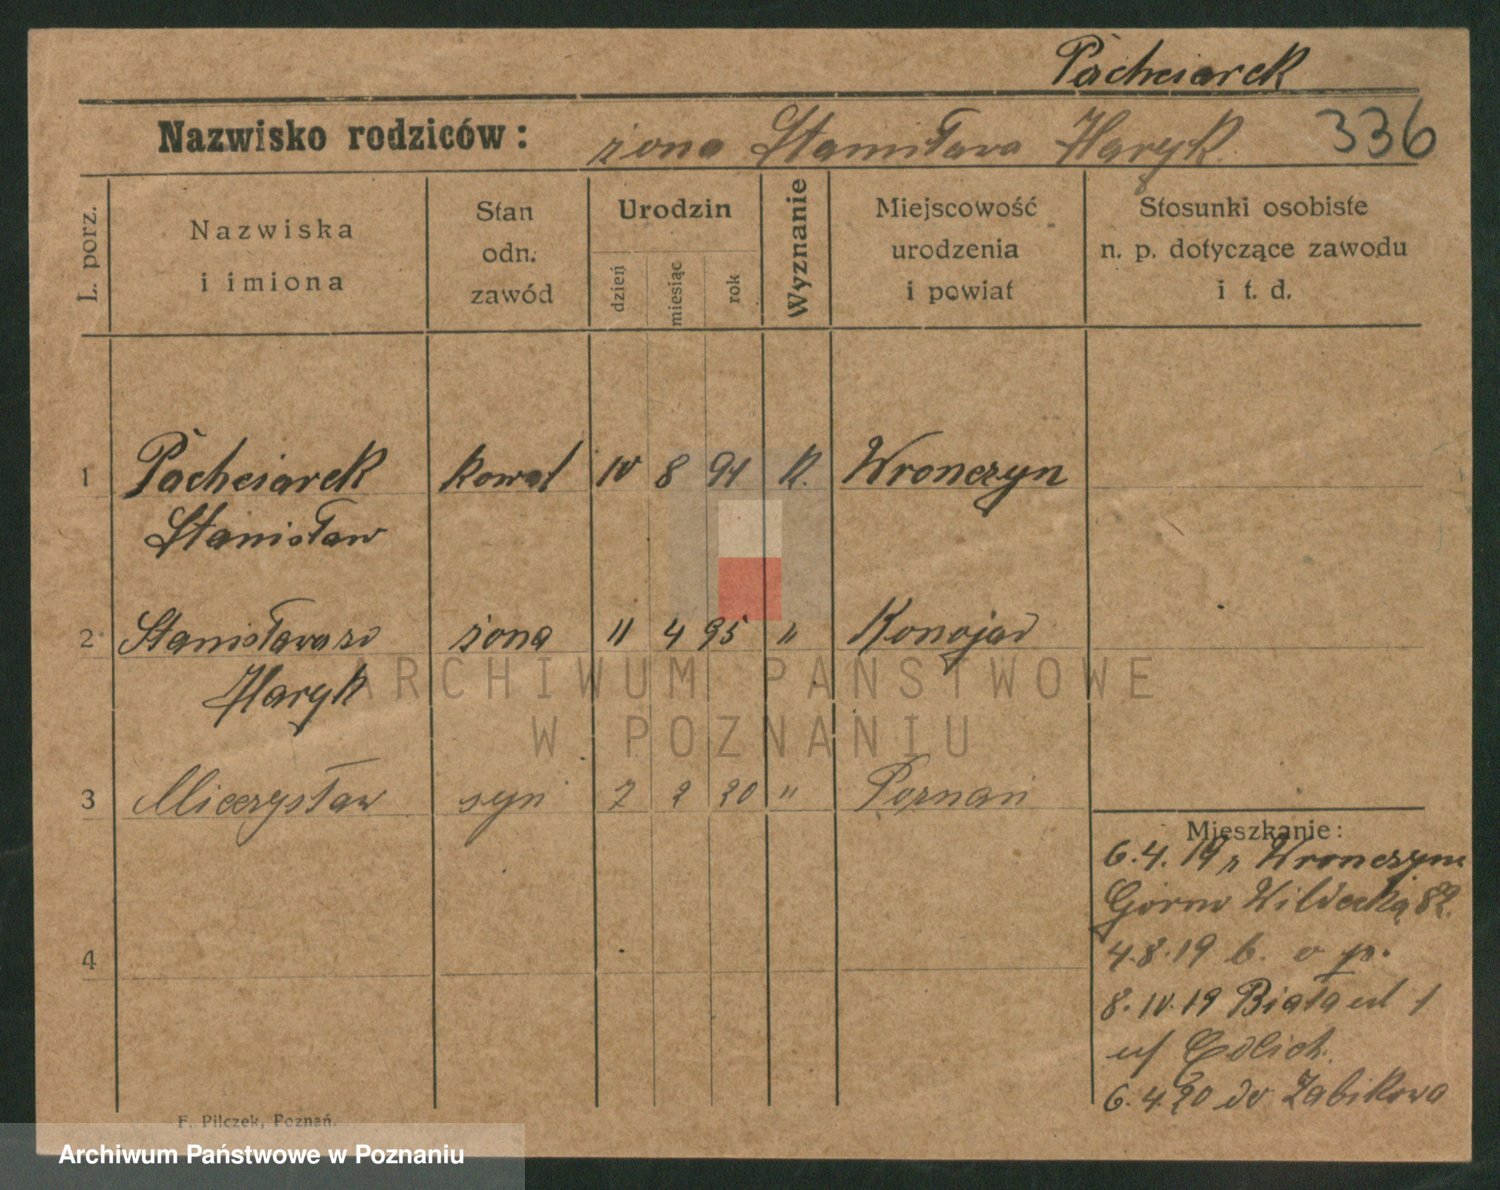 Pachciarek
Nazwisko rodziców: żona Stanisława Haryk 336
L. porz.
Nazwiska i imiona
Stan odn. zawód
Urodzin
dzień miesiąc rok
Wyznanie
Miejscowość urodzenia i powiat
Stosunki osobiste n. p. dotyczące zawodu i t. d.
1 Pachciarek kowal 10 8 91 K. Wronczyn
Stanisław
2 Stanisława zd żona 11 4 95 " Konojad
Haryk
3 Mieczysław syn 7 2 20 " Poznań
4
Mieszkanie:
6.4.19 z Wronczyna
Górna Wildecka 82.
4.8.19 b. o p.
8.10.19 Biała ul 1
u/ Edlich.
6.4.20 do Żabikowa
F. Pilczek, Poznań.
ARCHIWUM PAŃSTWOWE
W POZNANIU
Archiwum Państwowe w Poznaniu